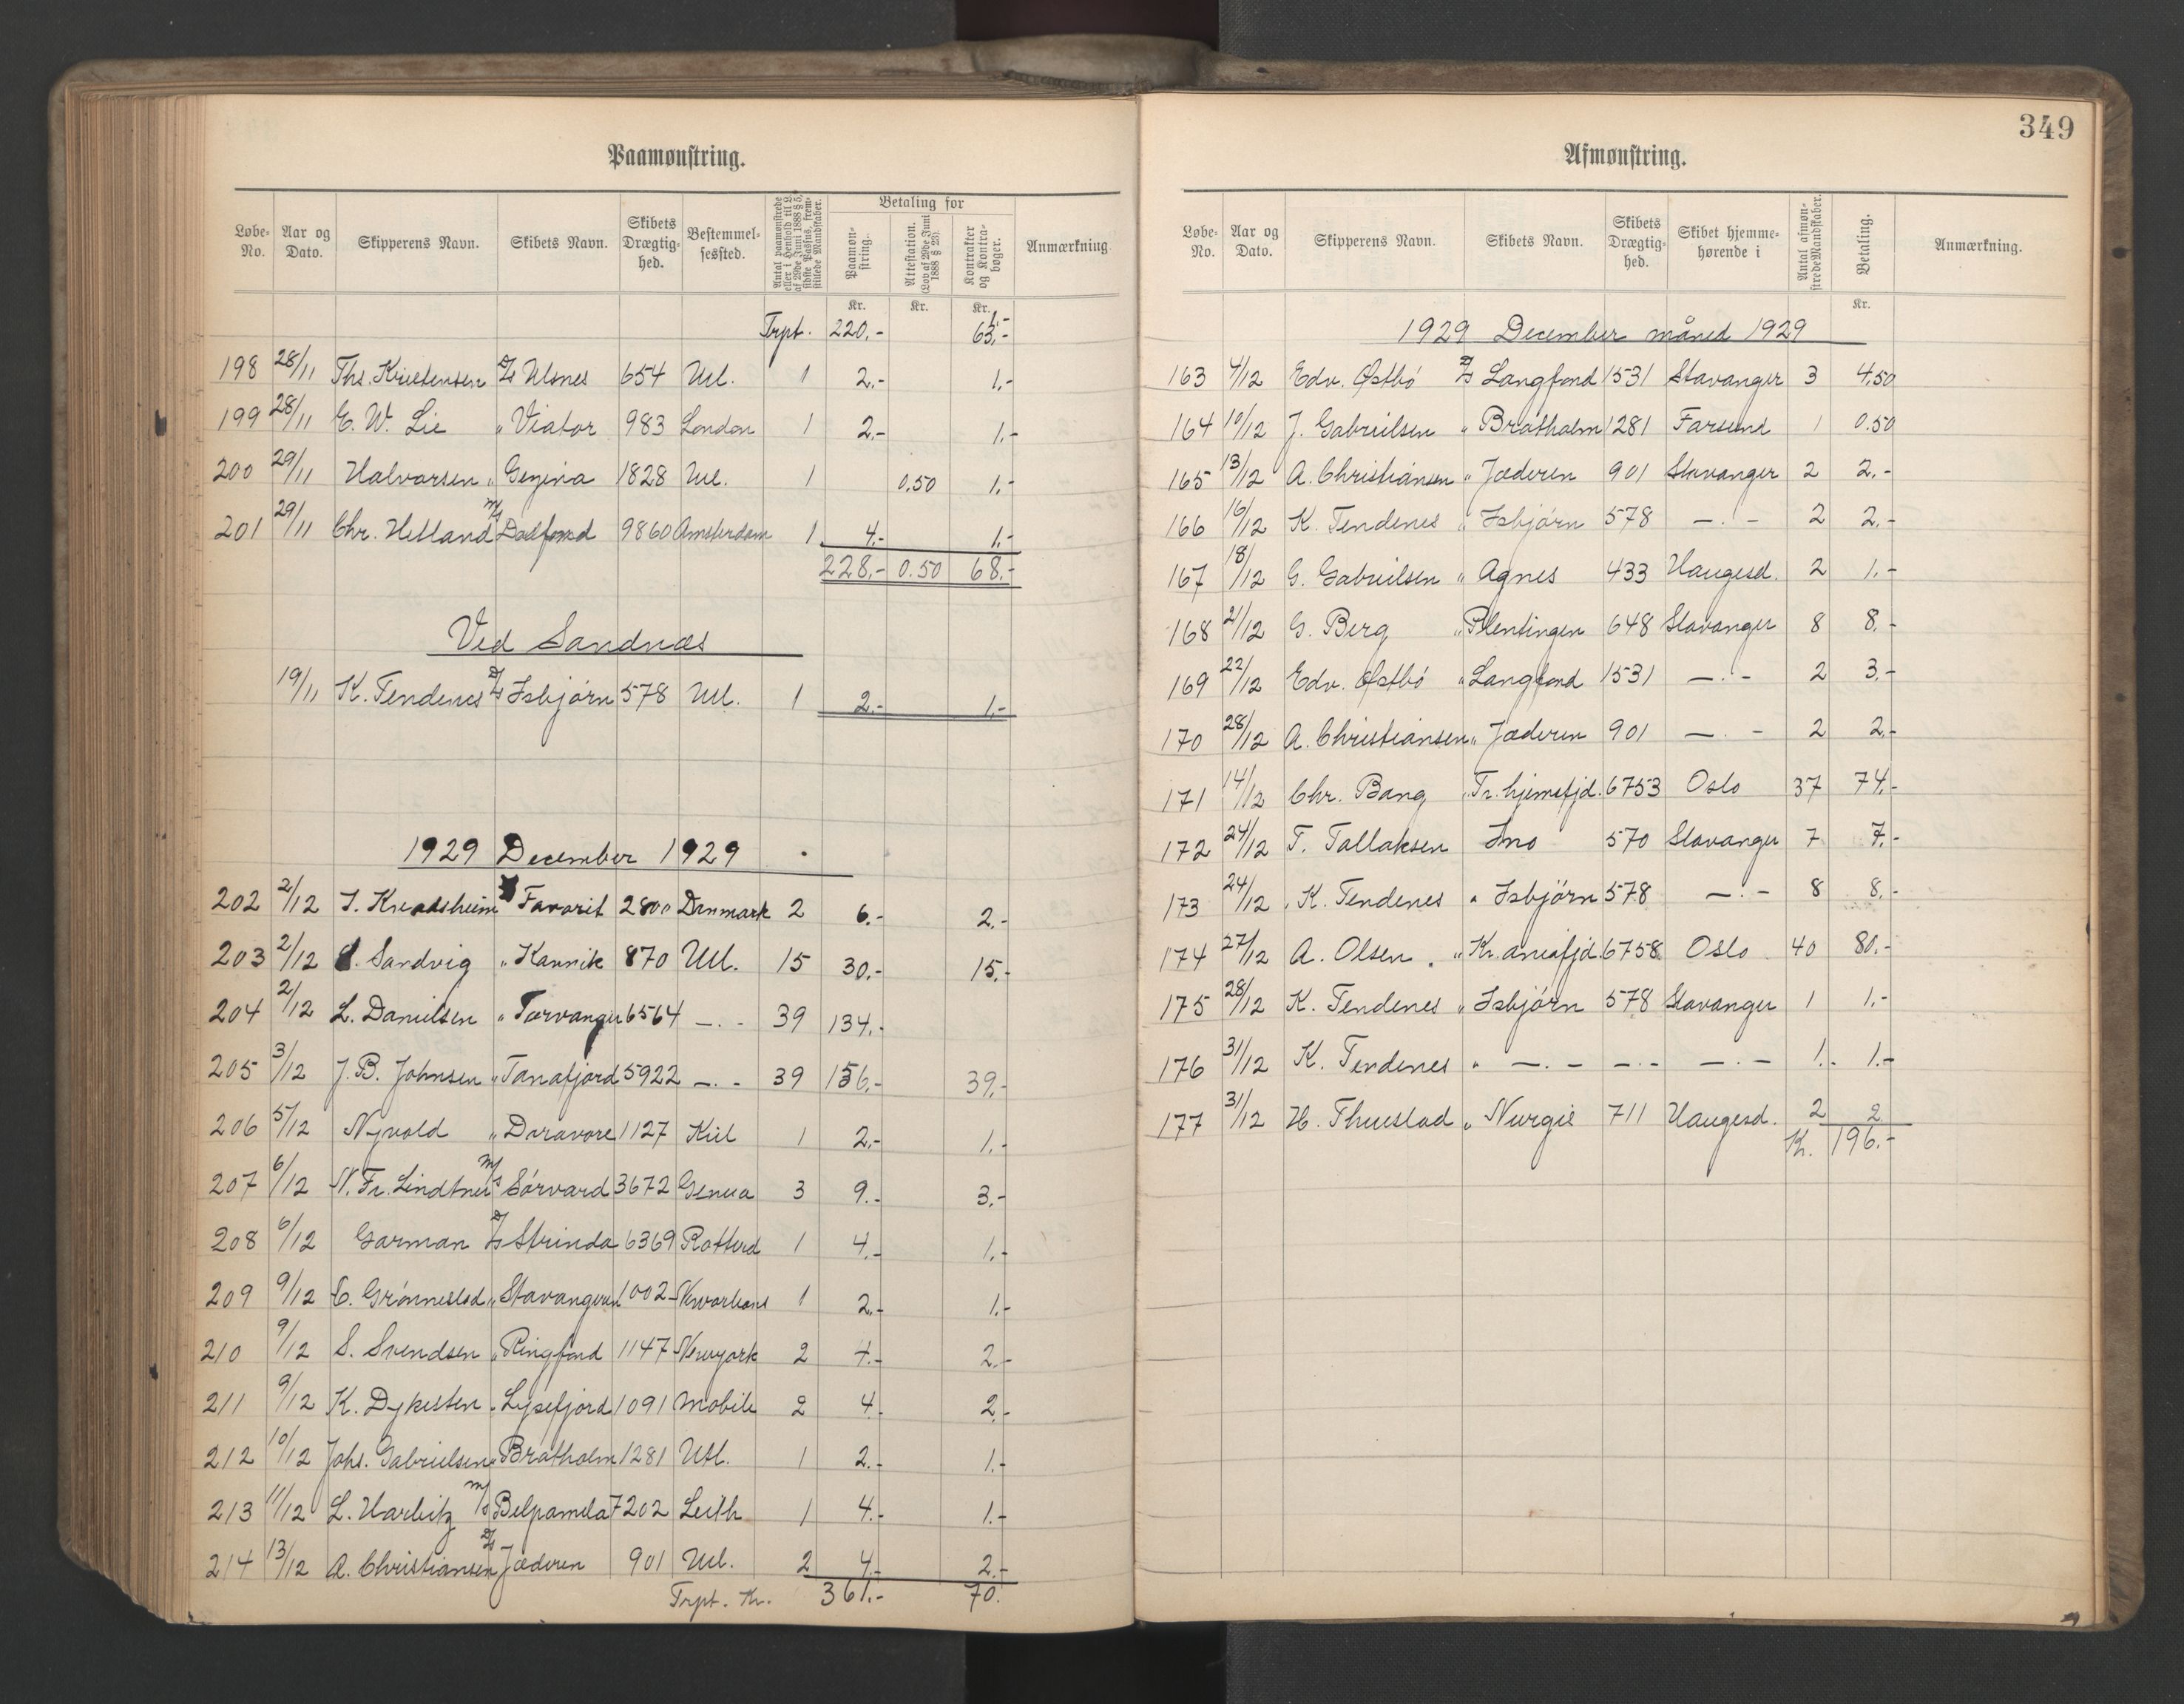 Paamønstring.
Løbe-No. Aar og Dato. Skipperens Navn. Skibets Navn. Skibets Drægtighed. Bestemmelsessted. Antal paamønstrede eller i Henhold til L. af 29de Juni 1888 § 5, sidste Passus, fremstillede Mandskaber. Betaling for Paamønstring. Attestation. (Lov af 29de Juni 1888 § 23). Kontrakter og Kontrabøger. Anmærkning
Kr. Kr. Kr.
Trpt. 220.- 63.-
1.-
198 28/11 Ths. Kristensen D/S Ulsnes 654 Utl. 1 2.- 1.-
199 28/11 E. W. Lie " Viator 983 London 1 2.- 1.-
200 29/11 Halvorsen " Gezina 1828 Utl. 1 0.50 1.-
201 29/11 Chr. Hetland M/S Dalfonn 9860 Amsterdam 1 4.- 1.-
228.- 0.50 68.-
Ved Sandnæs
19/11 K. Tendenes D/S Isbjørn 578 Utl. 1 2.- 1.-
1929 December 1929
202 2/12 Favorit 280 " Danmark 2 6.- 2.-
203 2/12 Sandvig " Kannik 870 Utl. 15 30.- 15.-
204 2/12 L. Danielsen " Torvanger 6564 -.- 39 134.-
205 3/12 J. B. Johnsen " Tanafjord 5922 -.- 39 156.- 39.-
206 5/12 Nyvold " Daravore 1127 Kiel 1 2.- 1.-
207 6/12 N. Fr. Lindtner M/S Sørvard 3672 Genua 3 9.- 3.-
208 6/12 Garman D/S Strinda 6369 Rotterd 1 4.- 1.-
209 9/12 C. Grønnestad " Stavangeren 1002 1 2.- 1.-
210 9/12 S. Svendsen " Ringfond 1147 Newyork 2 4.- 2.-
211 9/12 K. Dykesten " Lysefjord 1091 Mobile 2 4.- 2.-
212 10/12 Johs. Gabrielsen " Bratholm 1281 Utl. 1 2.- 1.-
213 11/12 L. Harbitz M/S Belpamela 7202 Leith 1 4.- 1.-
214 13/12 A. Christiansen D/S Jæderen 901 Utl. 2 4.- 2.-
Trpt. Kr. 361.- 70.
349
Afmønstring.
Løbe-No. Aar og Dato. Skipperens Navn. Skibets Navn. Skibets Drægtighed. Skibet hjemmehørende i Antal afmønstrede Mandskaber. Betaling. Anmærkning.
Kr.
1929 December måned 1929
163 4/12 Edv. Østbø D/S Langfond 1531 Stavanger 3 4.50
164 10/12 J. Gabrielsen " Bratholm 1281 Farsund 1 0.50
165 13/12 A. Christiansen " Jæderen 901 Stavanger 2 2.-
166 16/12 K. Tendenes " Isbjørn 578 -.- 2 2.-
167 18/12 G. Gabrielsen " Agnes 433 Haugesd. 2 1.-
168 21/12 G. Berg " Plentingen 648 Stavanger 8 8.-
169 22/12 Edv. Østbø " Langfond 1531 -.- 2 3.-
170 28/12 A. Christiansen " Jæderen 901 -.- 2 2.-
171 14/12 Chr. Bang " Tr.hjemsfjd. 6753 Oslo 37 74.-
172 24/12 T. Tallaksen Ino 570 Stavanger 7 7.-
173 24/12 K. Tendenes " Isbjørn 578 -.- 8 8.-
174 27/12 A. Olsen " Kr.aniafjd. 6758 Oslo 40 80.-
175 28/12 K. Tendenes " Isbjørn 578 Stavanger 1 1.-
176 31/12 K. Tendenes " -.- -.- -.- 1.- 1.-
177 31/12 H. Thuestad " Nurgis 711 Haugesd. 2 2
Kr. 196.-